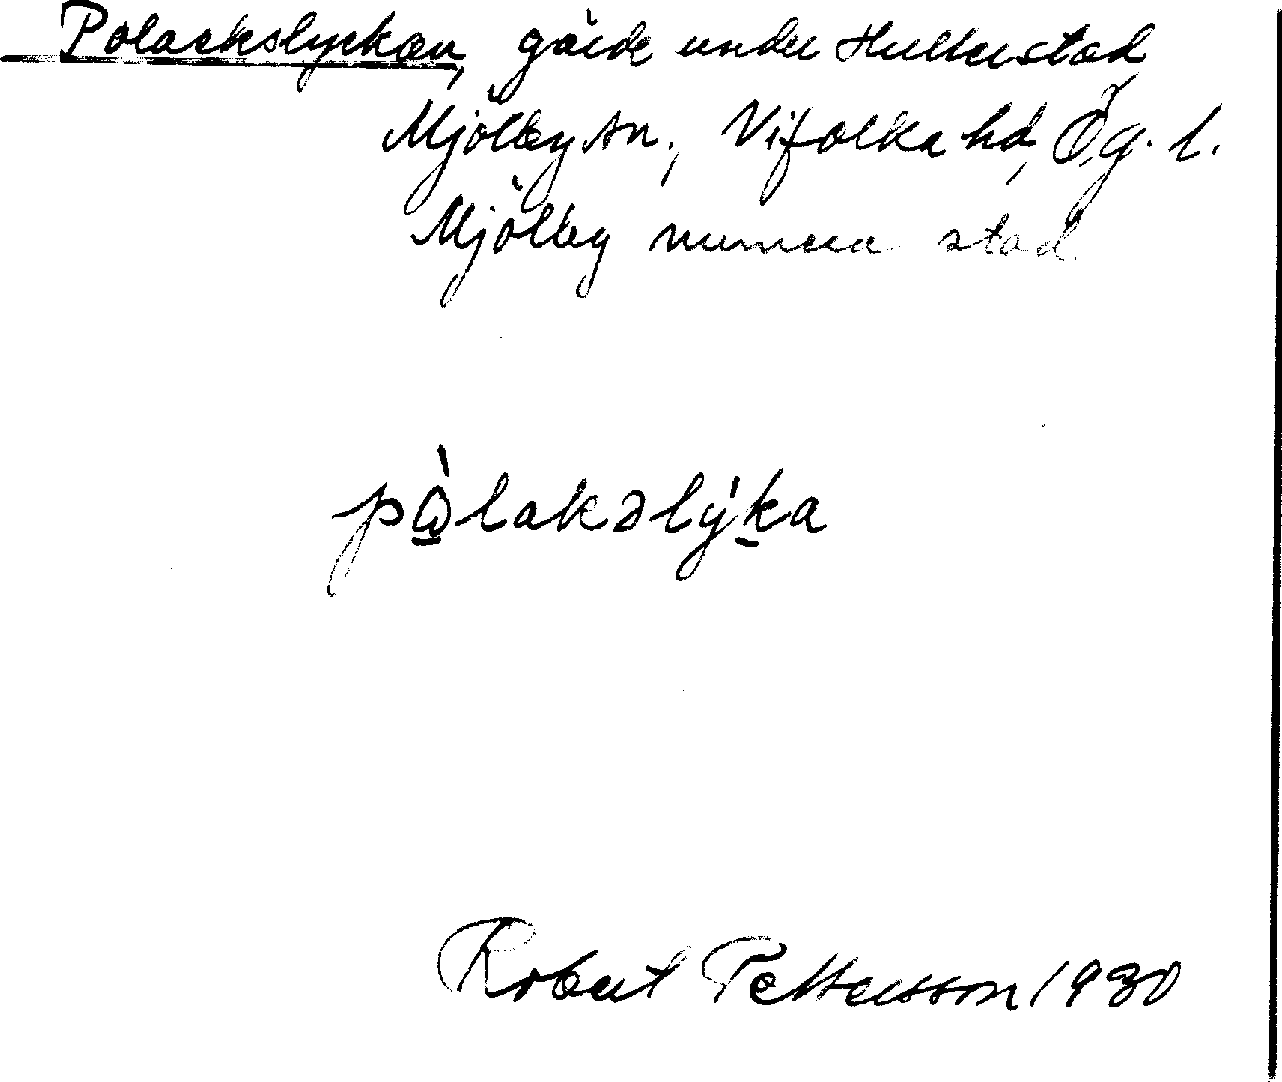 Polackslyckan, gärde under Hulterstad
Mjölby sn., Vifolka hd, Ög. l.
Mjölby numera stad
pòlakslýka
Robert Pettersson 1930